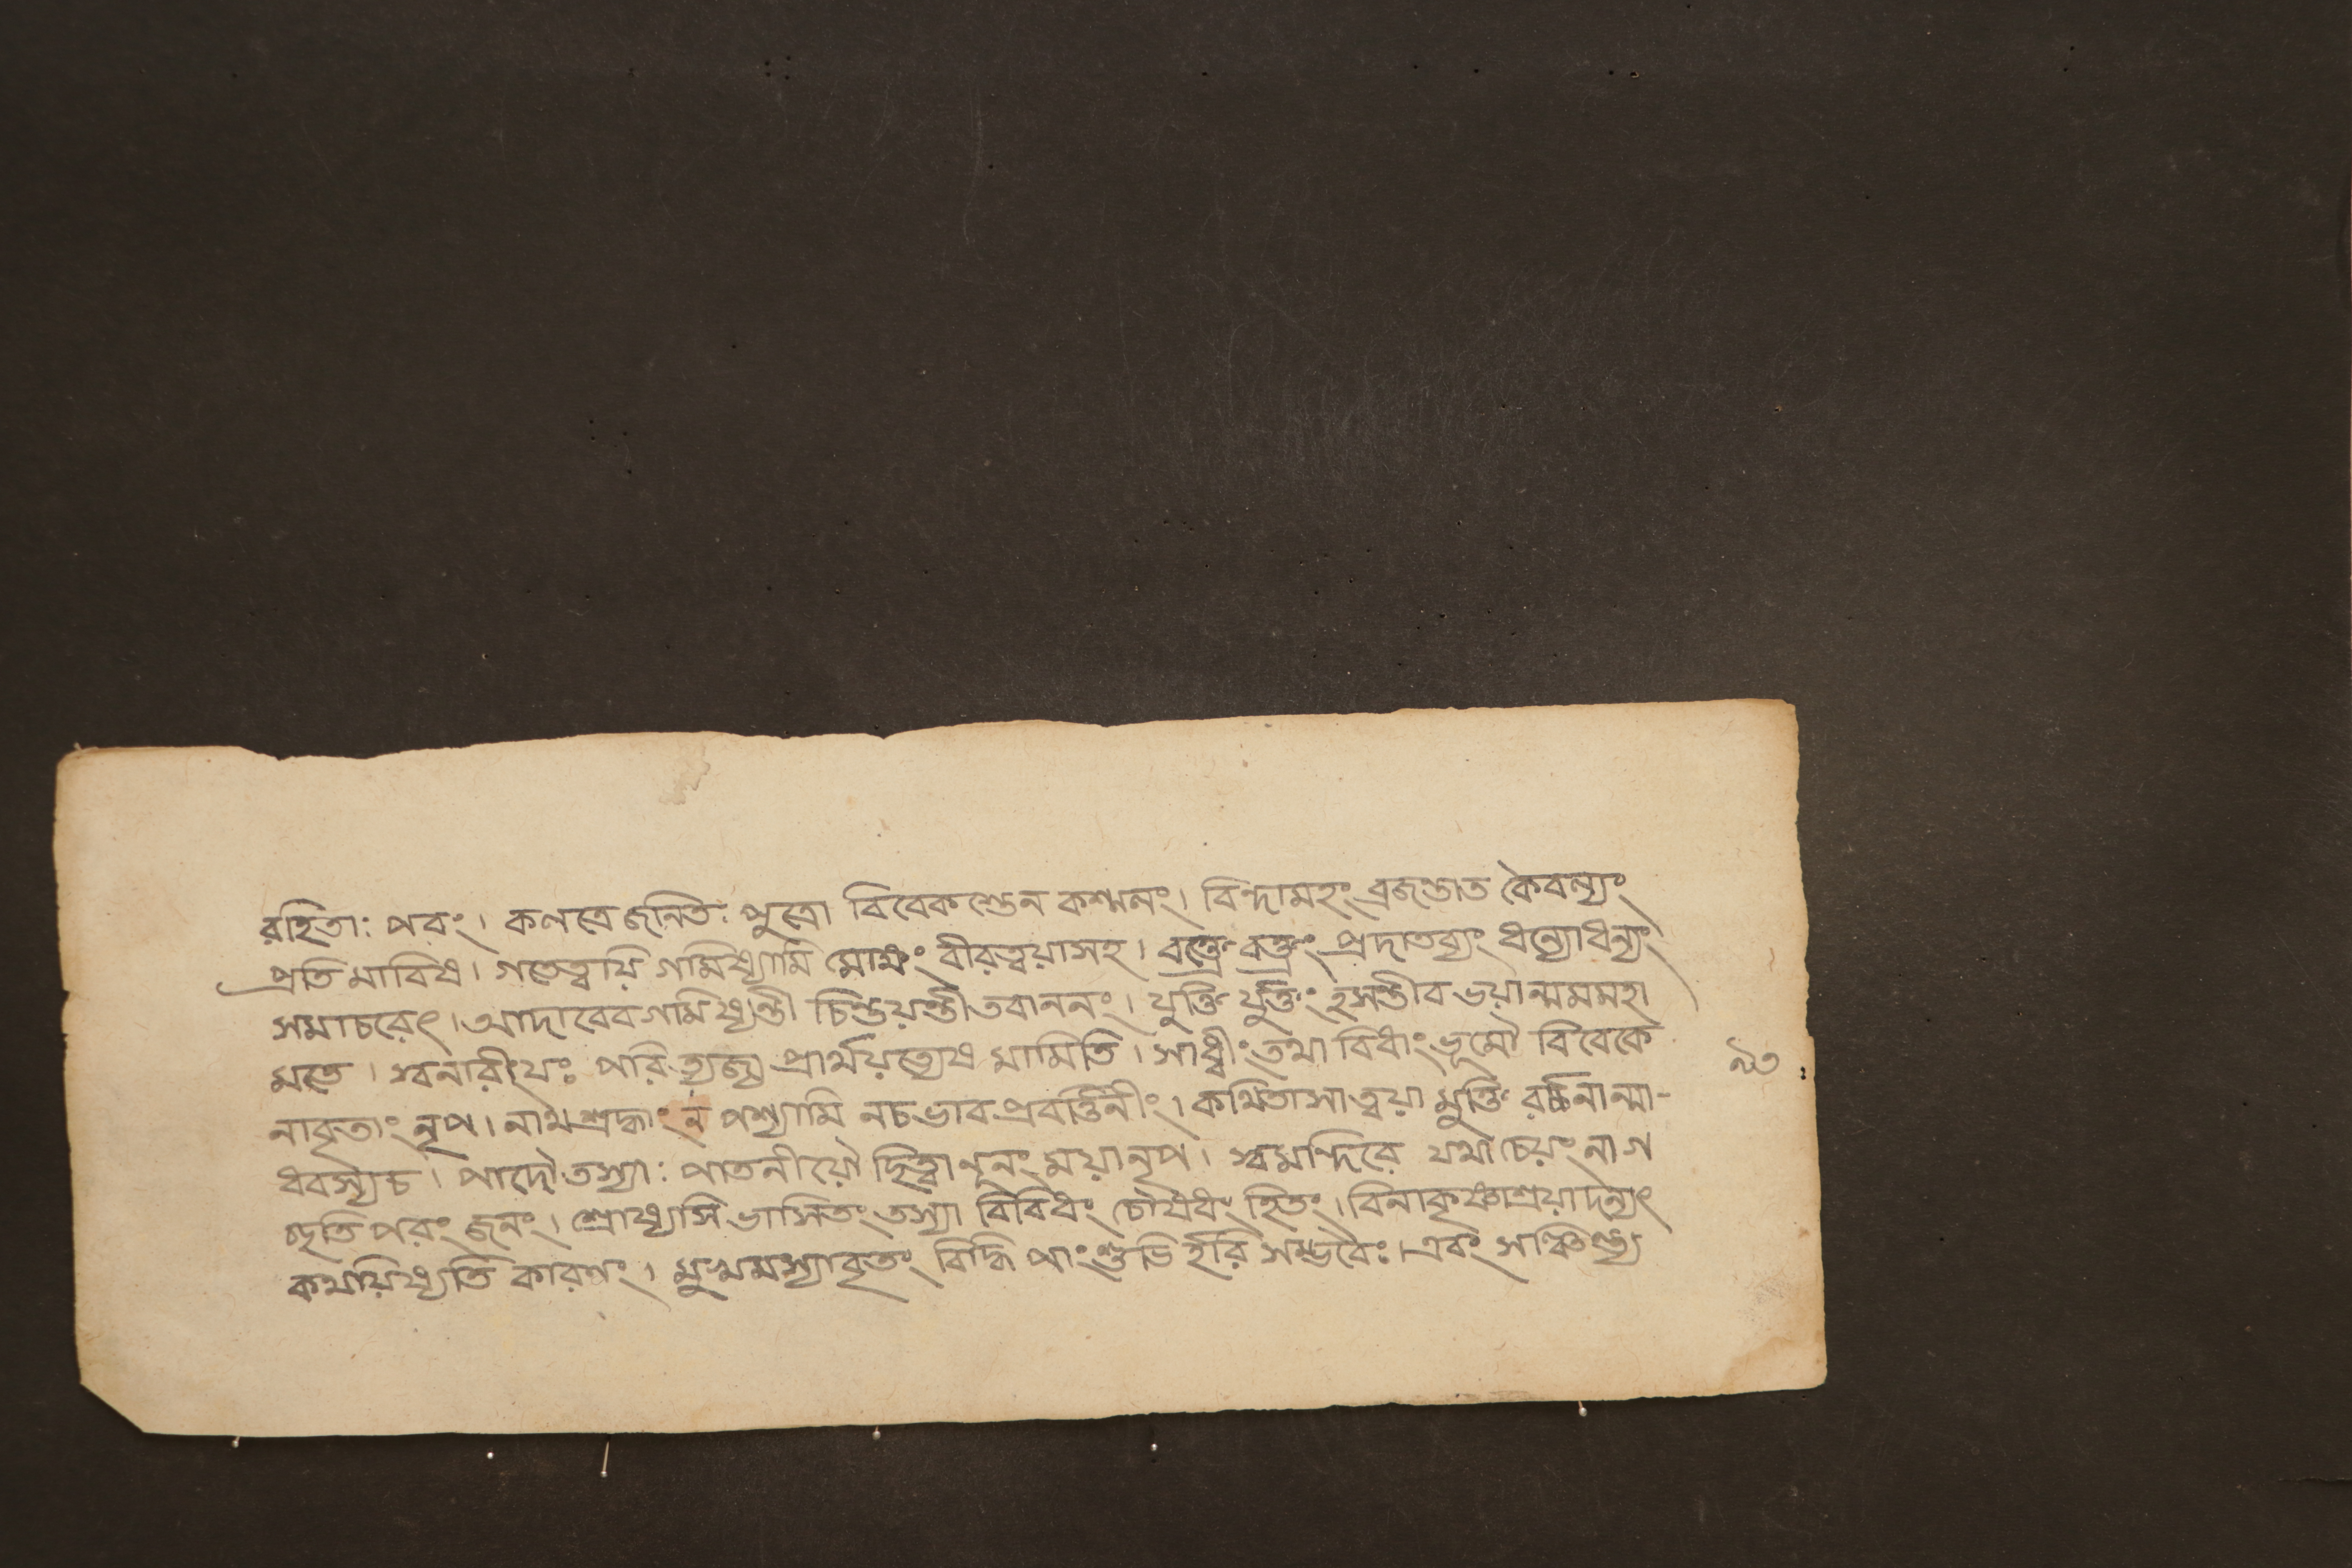 রহিতাঃ পরং। কলত্রেজনিতঃ পুত্রো বিবেকস্তেন কশ্মলং। বিন্দামহং ব্রজন্তাত কৈবল্যং
প্রতি মাবিষ। গতেত্বয়ি গমিষ্যামি মোক্ষং বীরত্বয়াসহ। বক্ত্রে বক্ত্রং প্রদাতব্যং ধন্যোধন্যং
সমাচরেৎ। আদাবেবগমিষ্যন্তী চিন্তয়ন্তী তবাননং। যুক্তি র্যুক্তং হসন্তীব ভয়ান্মমমহা
মতে। স্বনারীংযঃ পরিত্যজ্য প্রার্থয়ত্যেষ মামিতি। সাধ্বীং তথা বিধাং ভূমৌ বিবেকে
নাবৃতাং নৃপ। নাথশ্রদ্ধাং ন পশ্যামি নচভাব প্রবর্ত্তিনীং। কথিতাসাত্বয়া মুক্তি র্বচনান্মা-
ধবস্যচ। পাদৌ তস্যাঃ পাতনীয়ৌ ছিত্বা নূনং ময়ানৃপ। স্বমন্দিরে যথা চেয়ং নাগ
চ্ছতি পরং জনং। শ্রোষ্যসি ভাসিতং তস্যা বিবিধং চৌষধং হিতং। বিনাকৃষ্ণাশ্রয়াদন্যৎ
কথয়িষ্যতি কারণং। মুখমস্যাবৃতং বিদ্ধি পাংশুভি র্হরি সম্ভবৈঃ। এবং সঞ্চিন্ত্য
৯৩